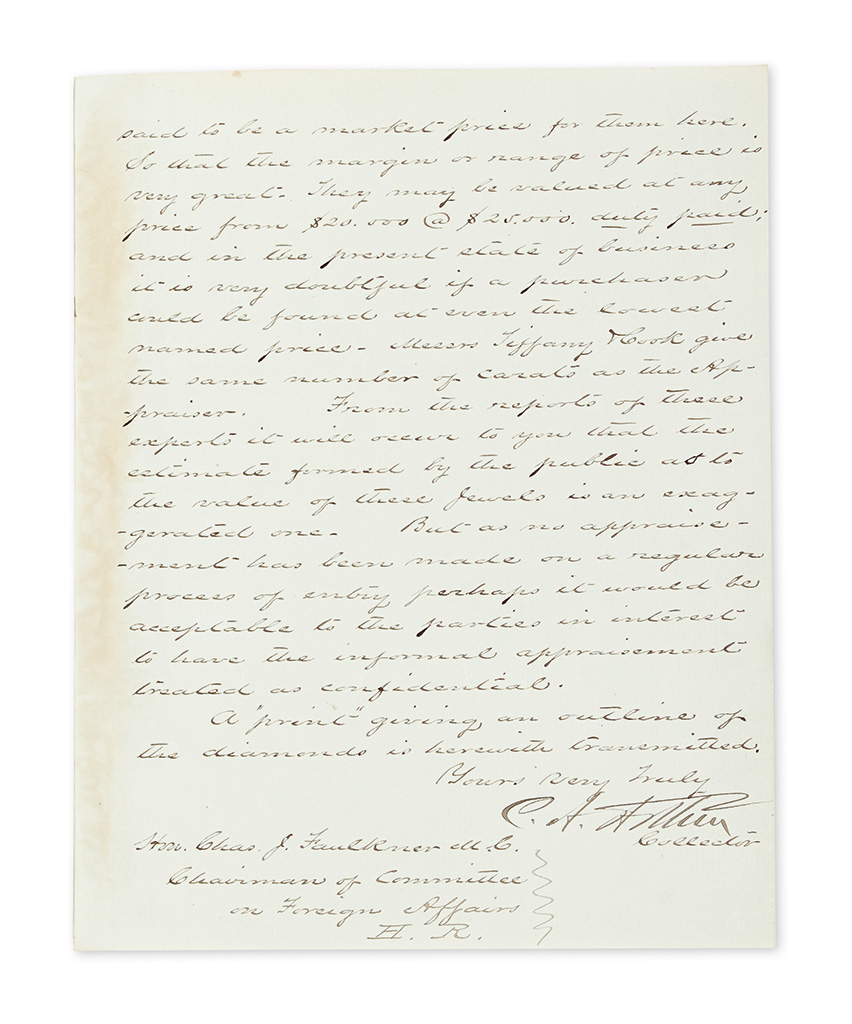 said to be a market price for them here.
So that the margin or range of price is
very great. They may be valued at any
price from $20.000 @ $25.000. duty paid;
and in the present state of business
it is very doubtful if a purchaser
could be found at even the lowest
named price - Messrs Tiffany & Cook give
the same number of carats as the Ap-
-praiser. From the reports of these
experts it will occur to you that the
estimate formed by the public as to
the value of these Jewels is an exag-
-gerated one - But as no appraise-
-ment has been made on a regular
process of entry perhaps it would be
acceptable to the parties in interest
to have the informal appraisement
treated as confidential.
A "print" giving an outline of
the diamonds is herewith transmitted.
Yours very Truly
C. A. Arthur
Collector
Hon. Chas. J. Faulkner M.C.
Chairman of Committee
on Foreign Affairs
H. R.